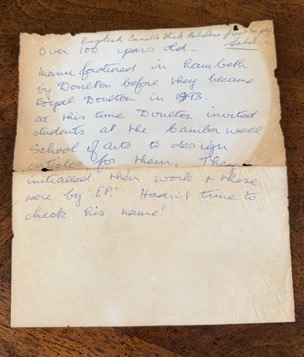 English Candle Stick Holders from the
Over 100 years old -
manufactured in Lambeth
by Doulton before they became
Royal Doulton in 1993.
At this time Doulton invited
students at the Camberwell
School of Arts to design
articles for them. They
initialled their work & these
were by "E.P." Hadn't time to
check his name!